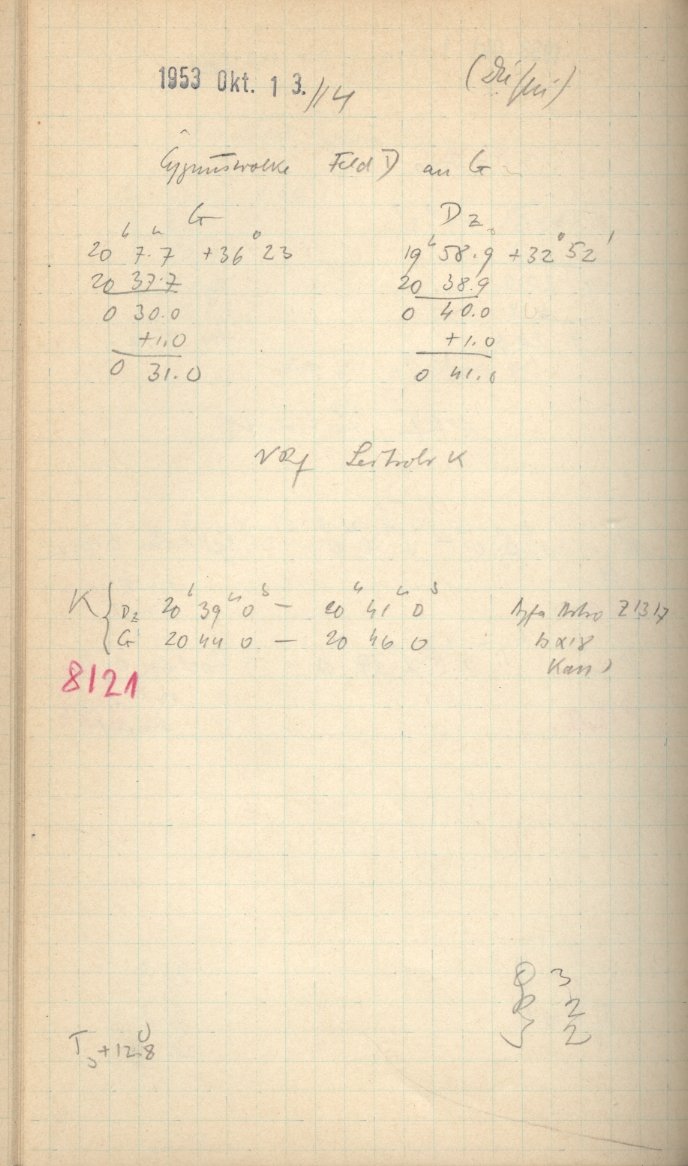 1953 Okt. 13./14
Cygnuswolke Feld D an G
G
20ʰ 7.7 +36° 23
20 37.7
0 30.0
+1.0
0 31.0
Dz
19ʰ 58.9 +32° 52'
20 38.9
0 40.0
+1.0
0 41.0
Leitrohr K
K { Dz 20ʰ 39ᵐ 0ˢ — 20ʰ 41ᵐ 0ˢ
G 20 44 0 — 20 46 0
Agfa Astro Z1317
8121
3
2
2
T +12.8